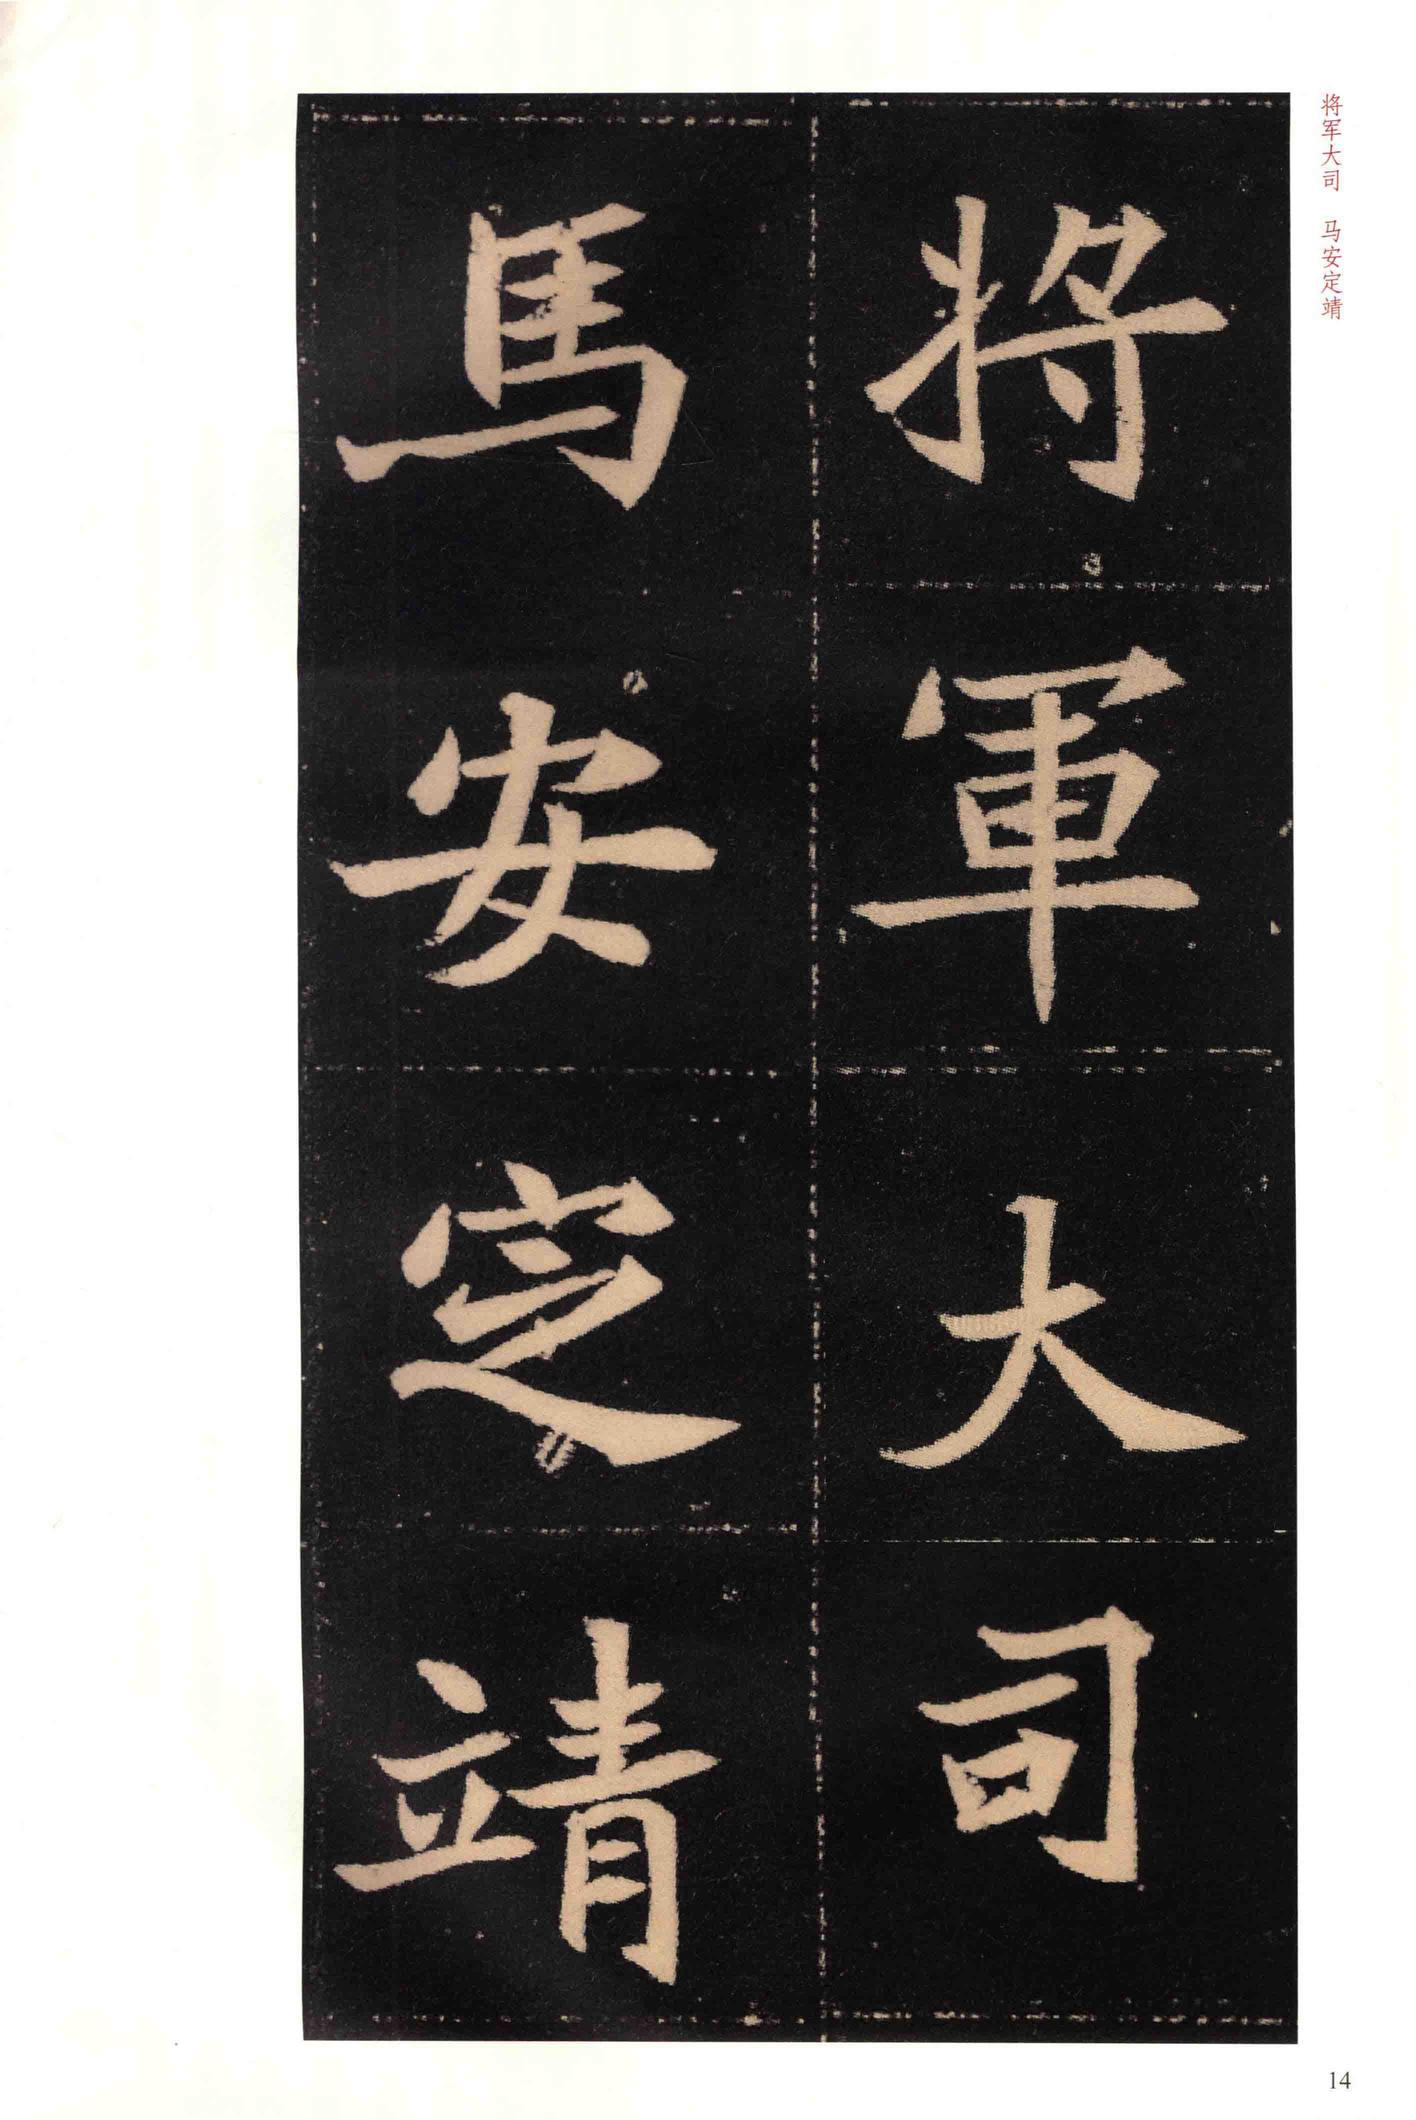 将军大司 马安定靖
将軍大司
馬安定靖
14